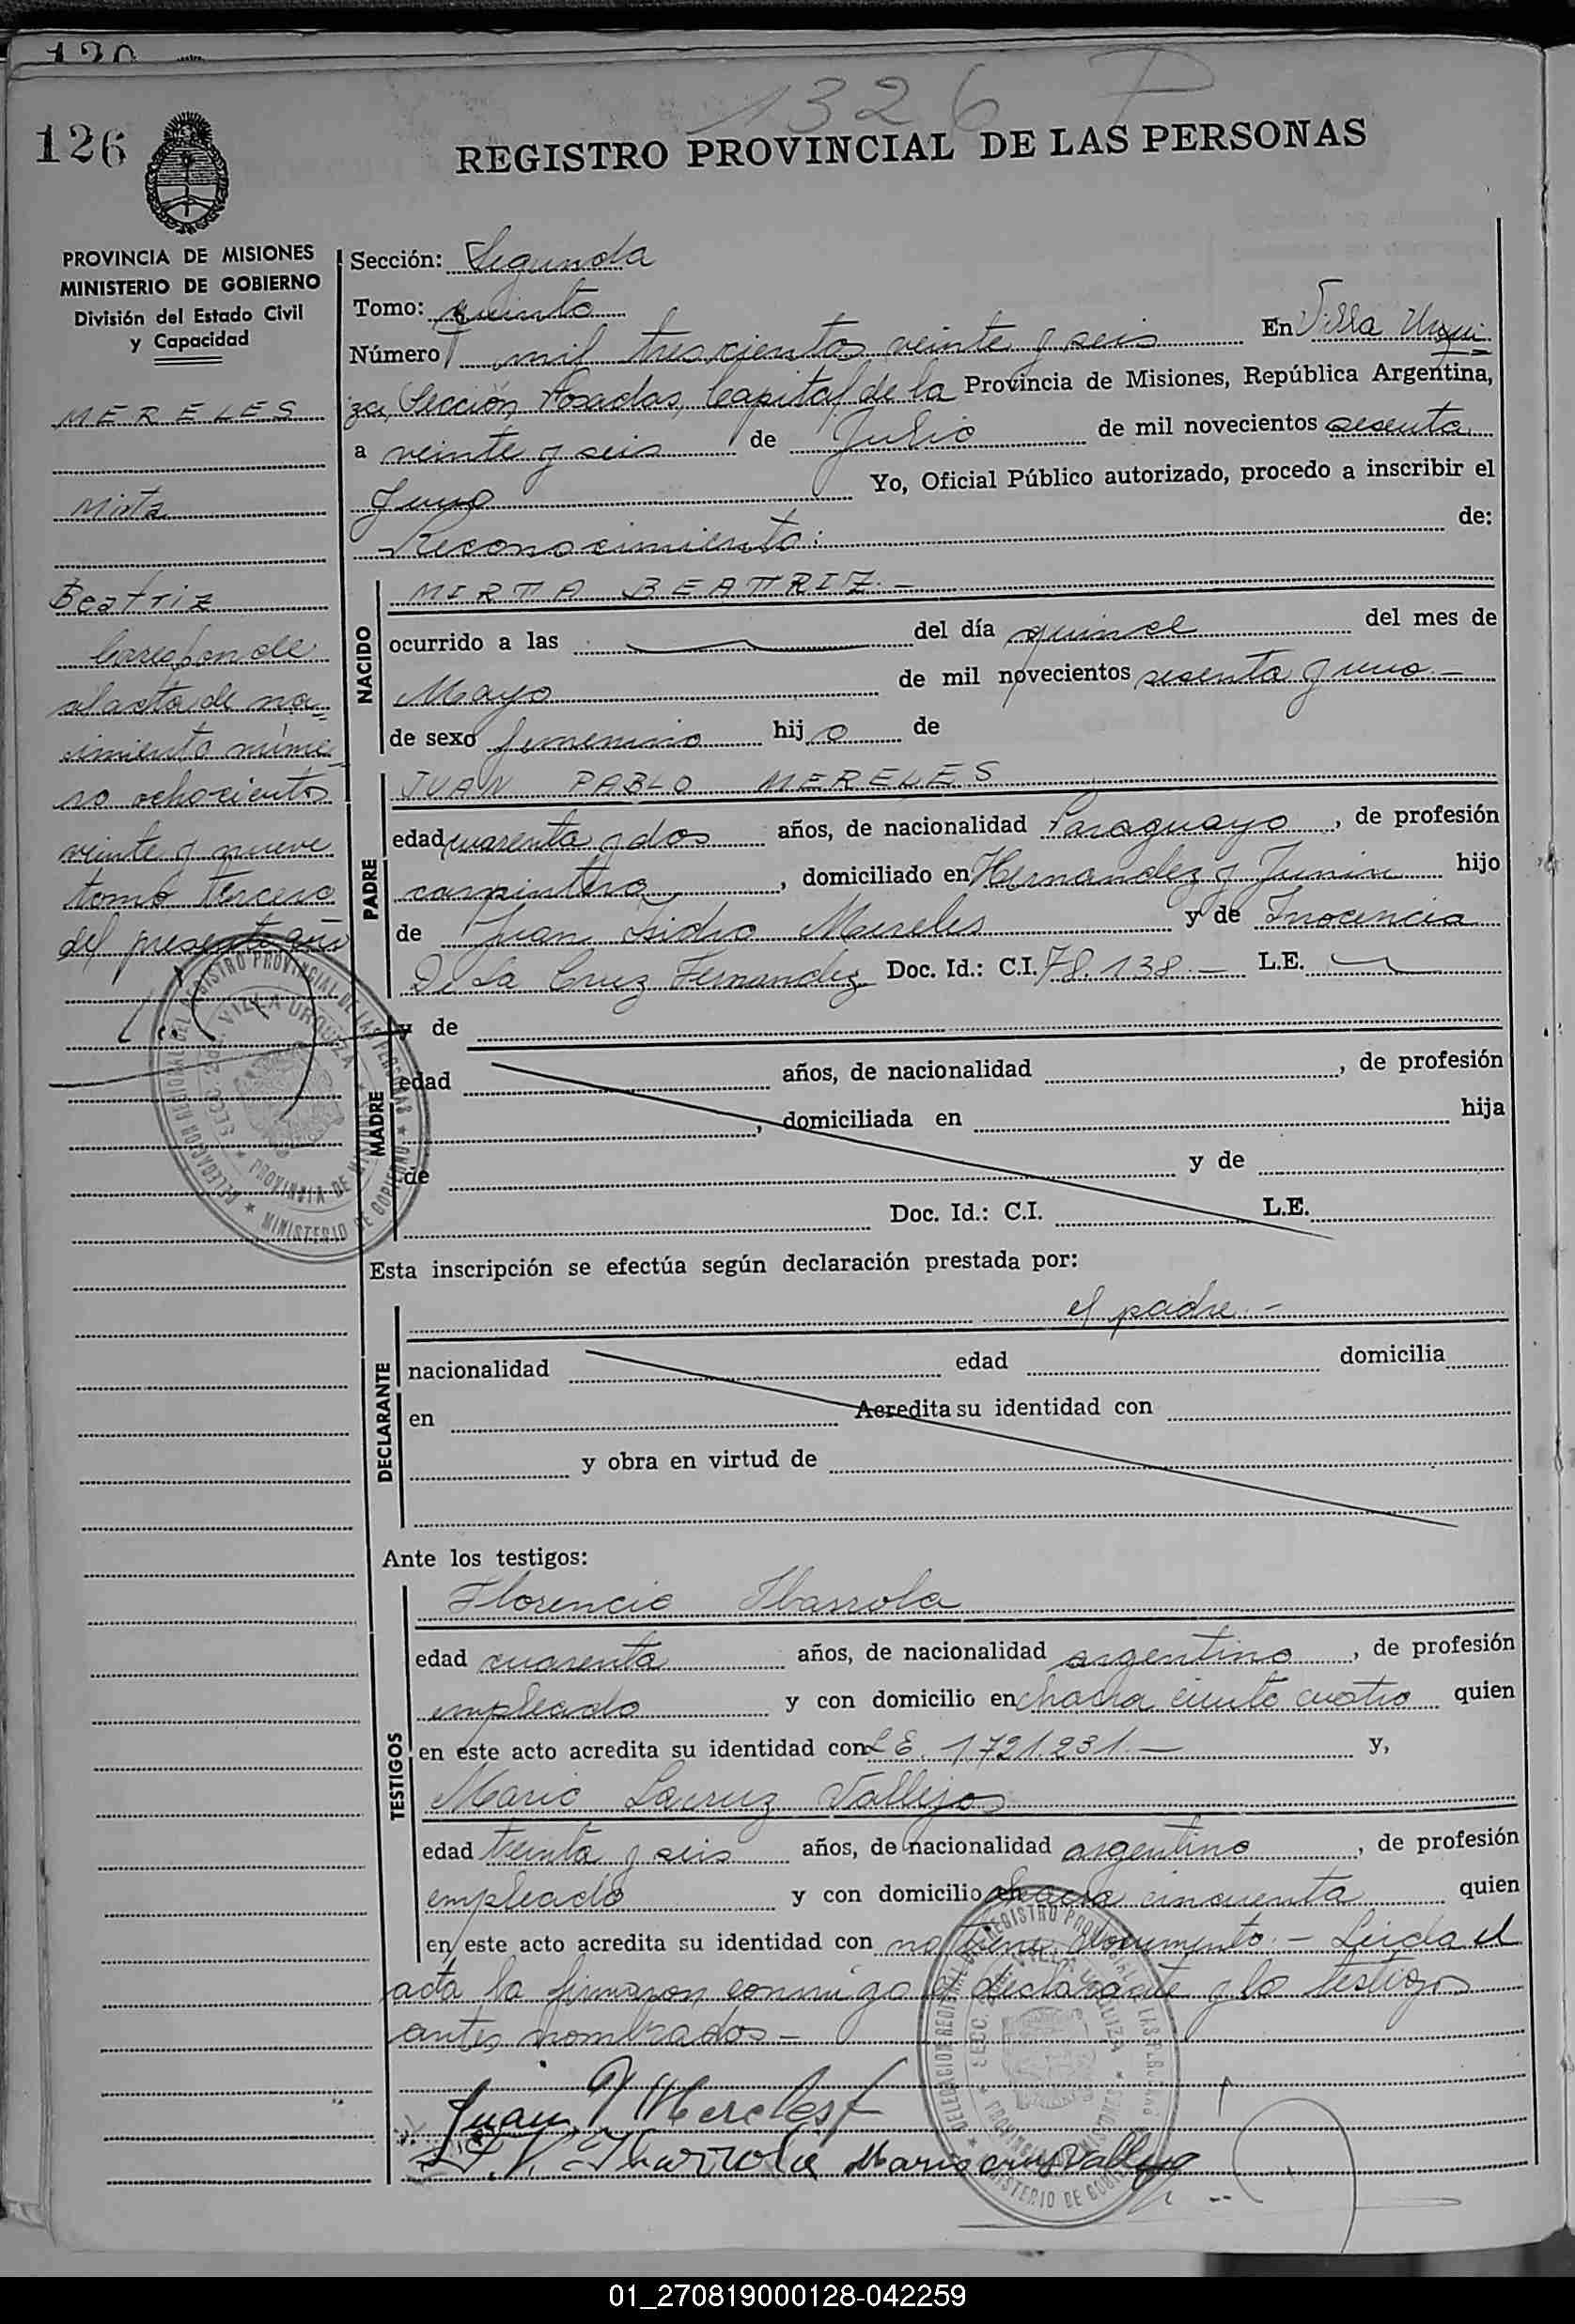 120
1326
126
REGISTRO PROVINCIAL DE LAS PERSONAS
PROVINCIA DE MISIONES
MINISTERIO DE GOBIERNO
División del Estado Civil
y Capacidad
MERELES
Mirta
Beatriz
Corresponde
al acta de na=
cimiento núme=
ro ochocientos
veinte y nueve
tomo tercero
del presente año
Sección: Segunda
Tomo: quinto
Número mil trescientos veinte y seis En Villa Urqui
za, Sección Posadas, Capital de la Provincia de Misiones, República Argentina,
a veinte y seis de Julio de mil novecientos sesenta
y uno Yo, Oficial Público autorizado, procedo a inscribir el
Reconocimiento: de:
NACIDO
MIRTA BEATRIZ.-
ocurrido a las del día quince del mes de
Mayo de mil novecientos sesenta y uno.-
de sexo femenino hijo de
PADRE
JUAN PABLO MERELES
edad cuarenta y dos años, de nacionalidad Paraguayo, de profesión
carpintero, domiciliado en Hernandez y Junin hijo
de Juan Isidro Mereles y de Inocencia
De La Cruz Fernandez Doc. Id.: C.I. 78.138.- L.E.
MADRE
y de
edad años, de nacionalidad , de profesión
, domiciliada en hija
de y de
Doc. Id.: C.I. L.E.
Esta inscripción se efectúa según declaración prestada por:
DECLARANTE
el padre.-
nacionalidad edad domicilia
en Acredita su identidad con
y obra en virtud de
Ante los testigos:
TESTIGOS
Florencio Ibarrola
edad cuarenta años, de nacionalidad argentino, de profesión
empleado y con domicilio en chacra ciento cuatro quien
en este acto acredita su identidad con L E. 1.721.231.- y,
Mario Lacruz Vallejos
edad treinta y seis años, de nacionalidad argentino, de profesión
empleado y con domicilio en chacra cincuenta quien
en este acto acredita su identidad con no tiene documento.- Leida el
acta la firmaron conmigo el declarante y lo testigos
antes nombrados-
Juan P Mereles F
F. V. Ibarrola Mario cruz Vallejo
DELEGACION REGIONAL DEL REGISTRO PROVINCIAL DE LAS PERSONAS
SECC. 2da. VILLA URQUIZA
PROVINCIA DE MISIONES
MINISTERIO DE GOBIERNO
01_270819000128-042259